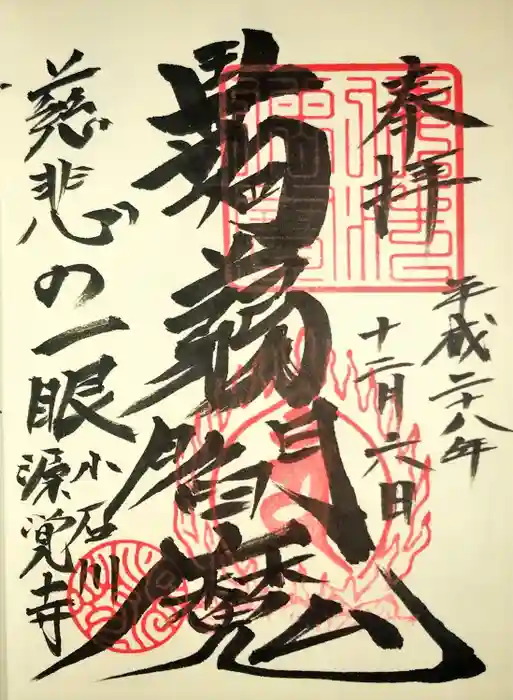 奉拝
平成二十八年
十二月六日
蒟蒻閻魔
慈悲の一眼
小石川
源覚寺